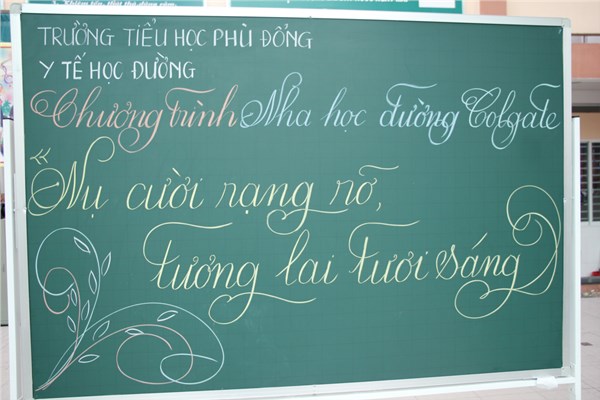 TRƯỜNG TIỂU HỌC PHÙ ĐỔNG
Y TẾ HỌC ĐƯỜNG
Chương trình Nha học đường Colgate
"Nụ cười rạng rỡ,
tương lai tươi sáng"